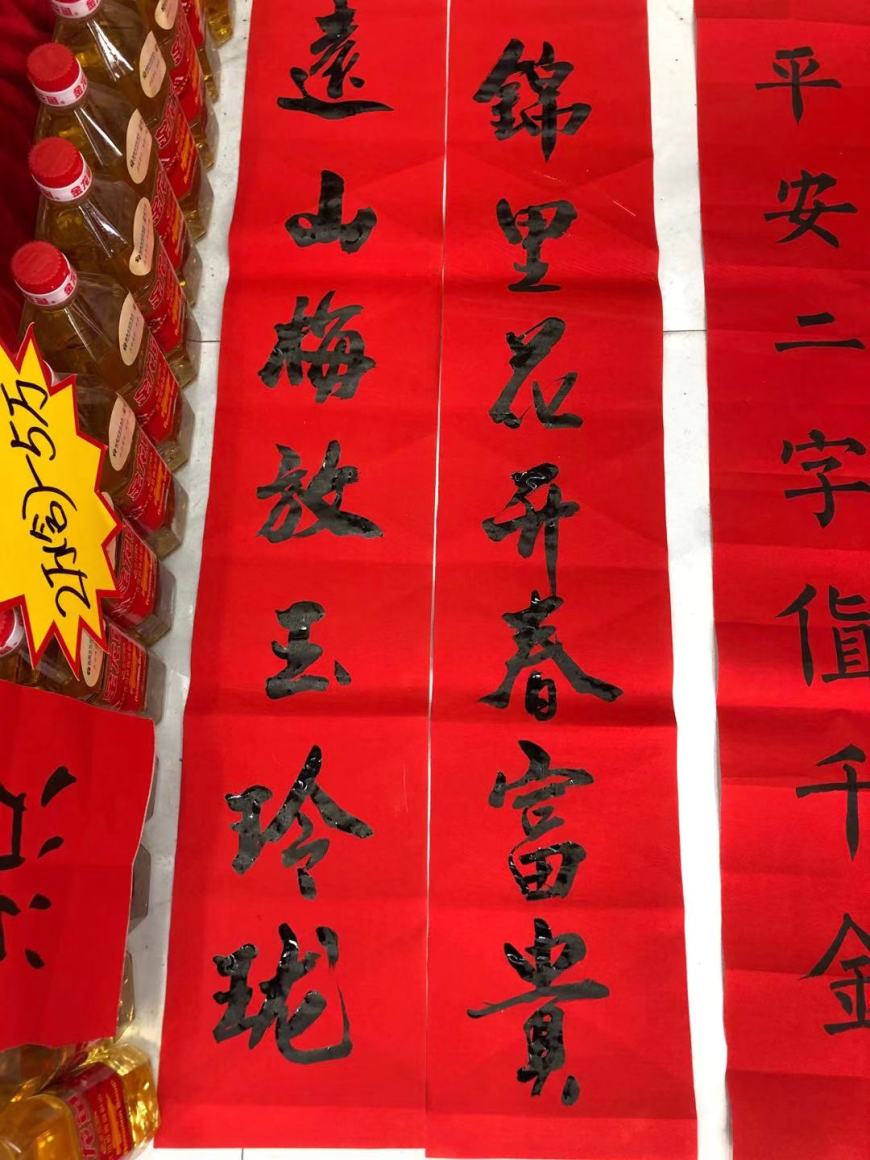 平安二字值千金
錦里花开春富貴
遠山梅放玉玲珑
5万